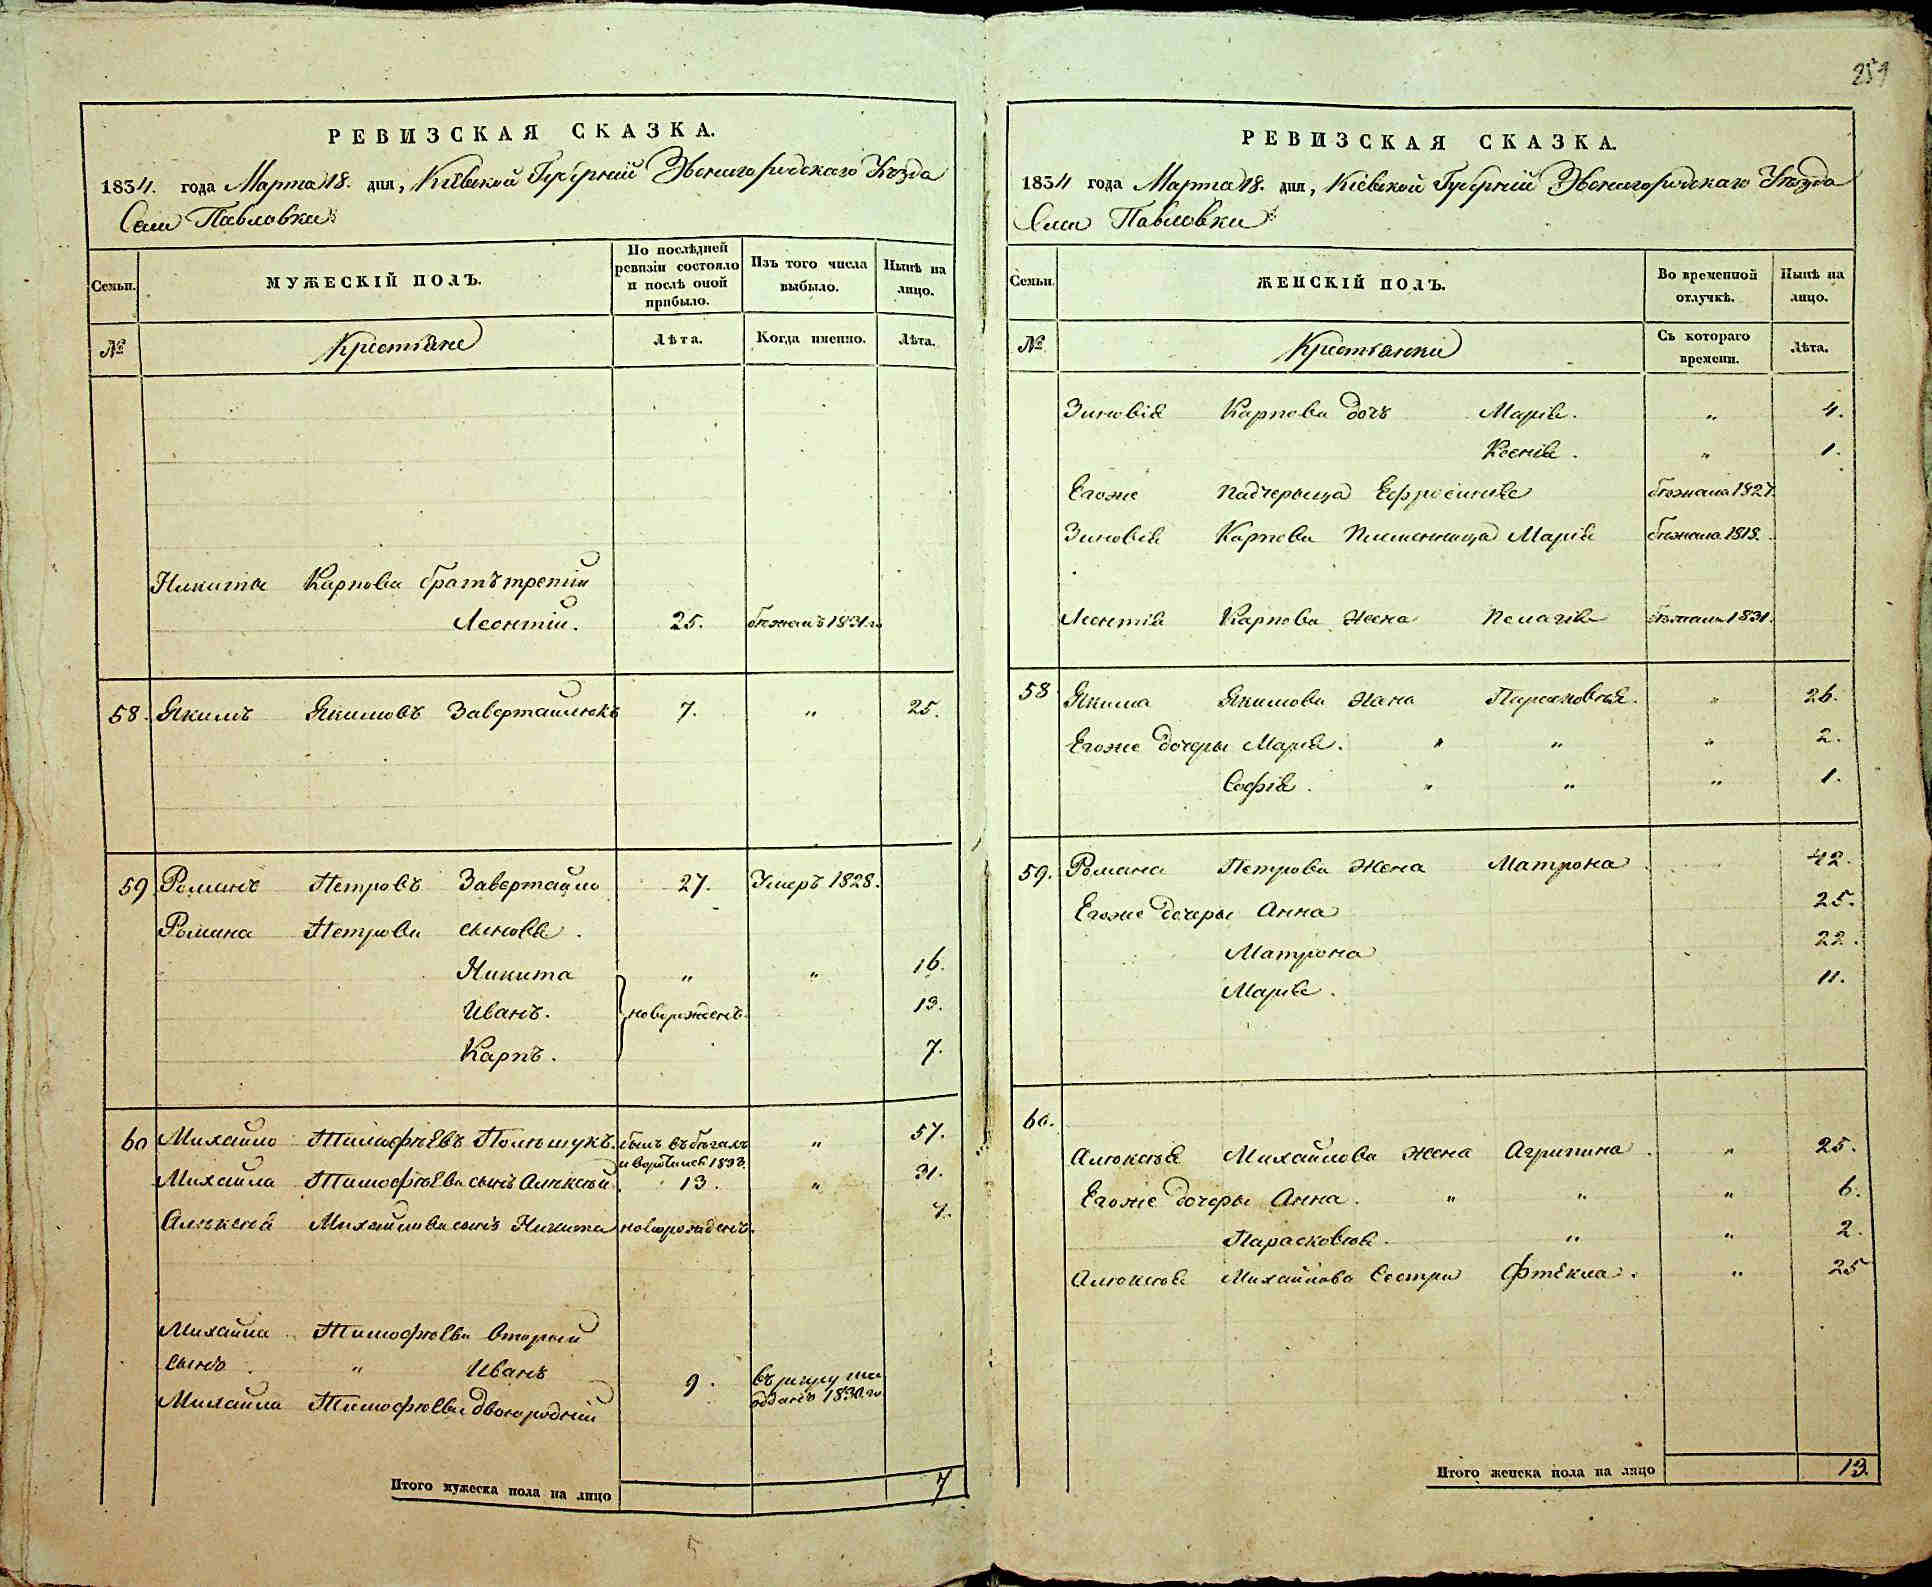 251
РЕВИЗСКАЯ СКАЗКА.
1834. года Марта 18. дня, Кіевской Губерніи Звенигородскаго Уѣзда
Села Павловки
Семьи.
МУЖЕСКІЙ ПОЛЪ.
По послѣдней ревизіи состояло и послѣ оной прибыло.
Изъ того числа выбыло.
Нынѣ на лицо.
№
Крестьяне
Лѣта.
Когда именно.
Лѣта.
Никиты Карпова братъ третій
Леонтій. 25. бѣжалъ 1831.го
58. Якимъ Якимовъ 7. „ 25.
59 Романъ Петровъ Завертайло 27. Умеръ 1828.
Романа Петрова сыновья.
Никита „ „ 16.
Иванъ. новорожденъ. 13.
Карпъ. 7.
60 Михайло Тимофѣевъ Полѣшукъ. былъ въ бѣгахъ „ 57.
1833.
Михайла Тимофѣева сынъ Алѣксѣй. 13. „ 31.
Алѣксѣя Михайлова сынъ Никита новорожденъ. 7.
Михайла Тимофѣева вторый
сынъ „ Иванъ 9. въ рекруты
отданъ 1830.го
Михайла Тимофѣева двоюродній
Итого мужеска пола на лицо 7
РЕВИЗСКАЯ СКАЗКА.
1834 года Марта 18. дня, Кіевской Губерніи Звенигородскаго Уѣзда
Села Павловки
Семьи.
ЖЕНСКІЙ ПОЛЪ.
Во временной отлучкѣ.
Нынѣ на лицо.
№
Крестьянки
Съ котораго времени.
Лѣта.
Зиновія Карпова дочь Марія. „ 4.
Ксенія. „ 1.
Егоже падчерыца Ефросинія бѣжала 1827.
Зиновія Карпова племенница Марія бѣжала 1818.
Леонтія Карпова жена Пелагія бѣжала 1831.
58 Якима Якимова жена Парасковѣя. „ 26.
Егоже дочеры Марія. „ „ „ 2.
Софія. „ „ „ 1.
59. Романа Петрова жена Матрона 42.
Егоже дочеры Анна 25.
Матрона 22.
Марія. 11.
60.
Алѣксѣя Михайлова жена Агрипина. „ 25.
Егоже дочеры Анна. „ „ „ 6.
Парасковѣя. „ „ 2.
Алѣксѣя Михайлова сестра Фтекла. „ 25
Итого женска пола на лицо 13.
5